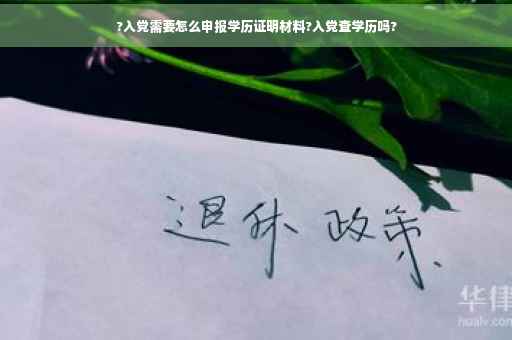 ?入党需要怎么申报学历证明材料?入党查学历吗?
退休 政策
华律
hualv.com